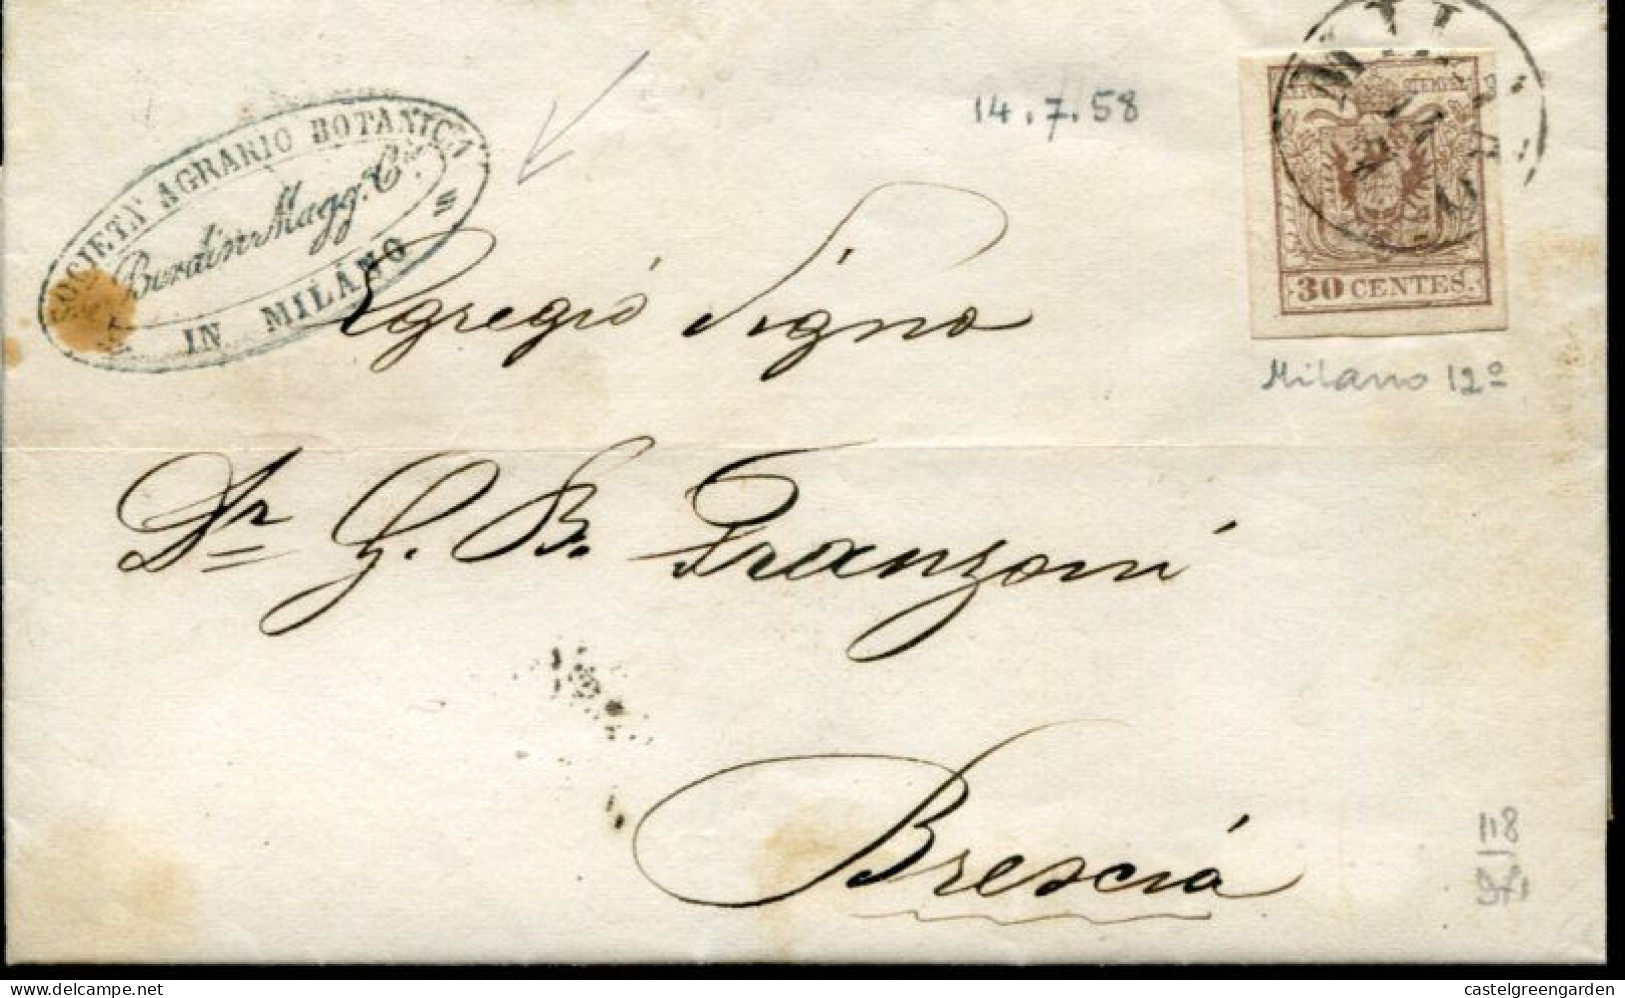 SOCIETA' AGRARIO BOTANICA
Burdin Magg. Cia.
IN MILANO
14.7.58
MIL
STEMPEL
30 CENTES.
Milano 12º
Egregio Signo
Dr G. B. Franzoni
Brescia
118
delcampe.net
castelgreengarden